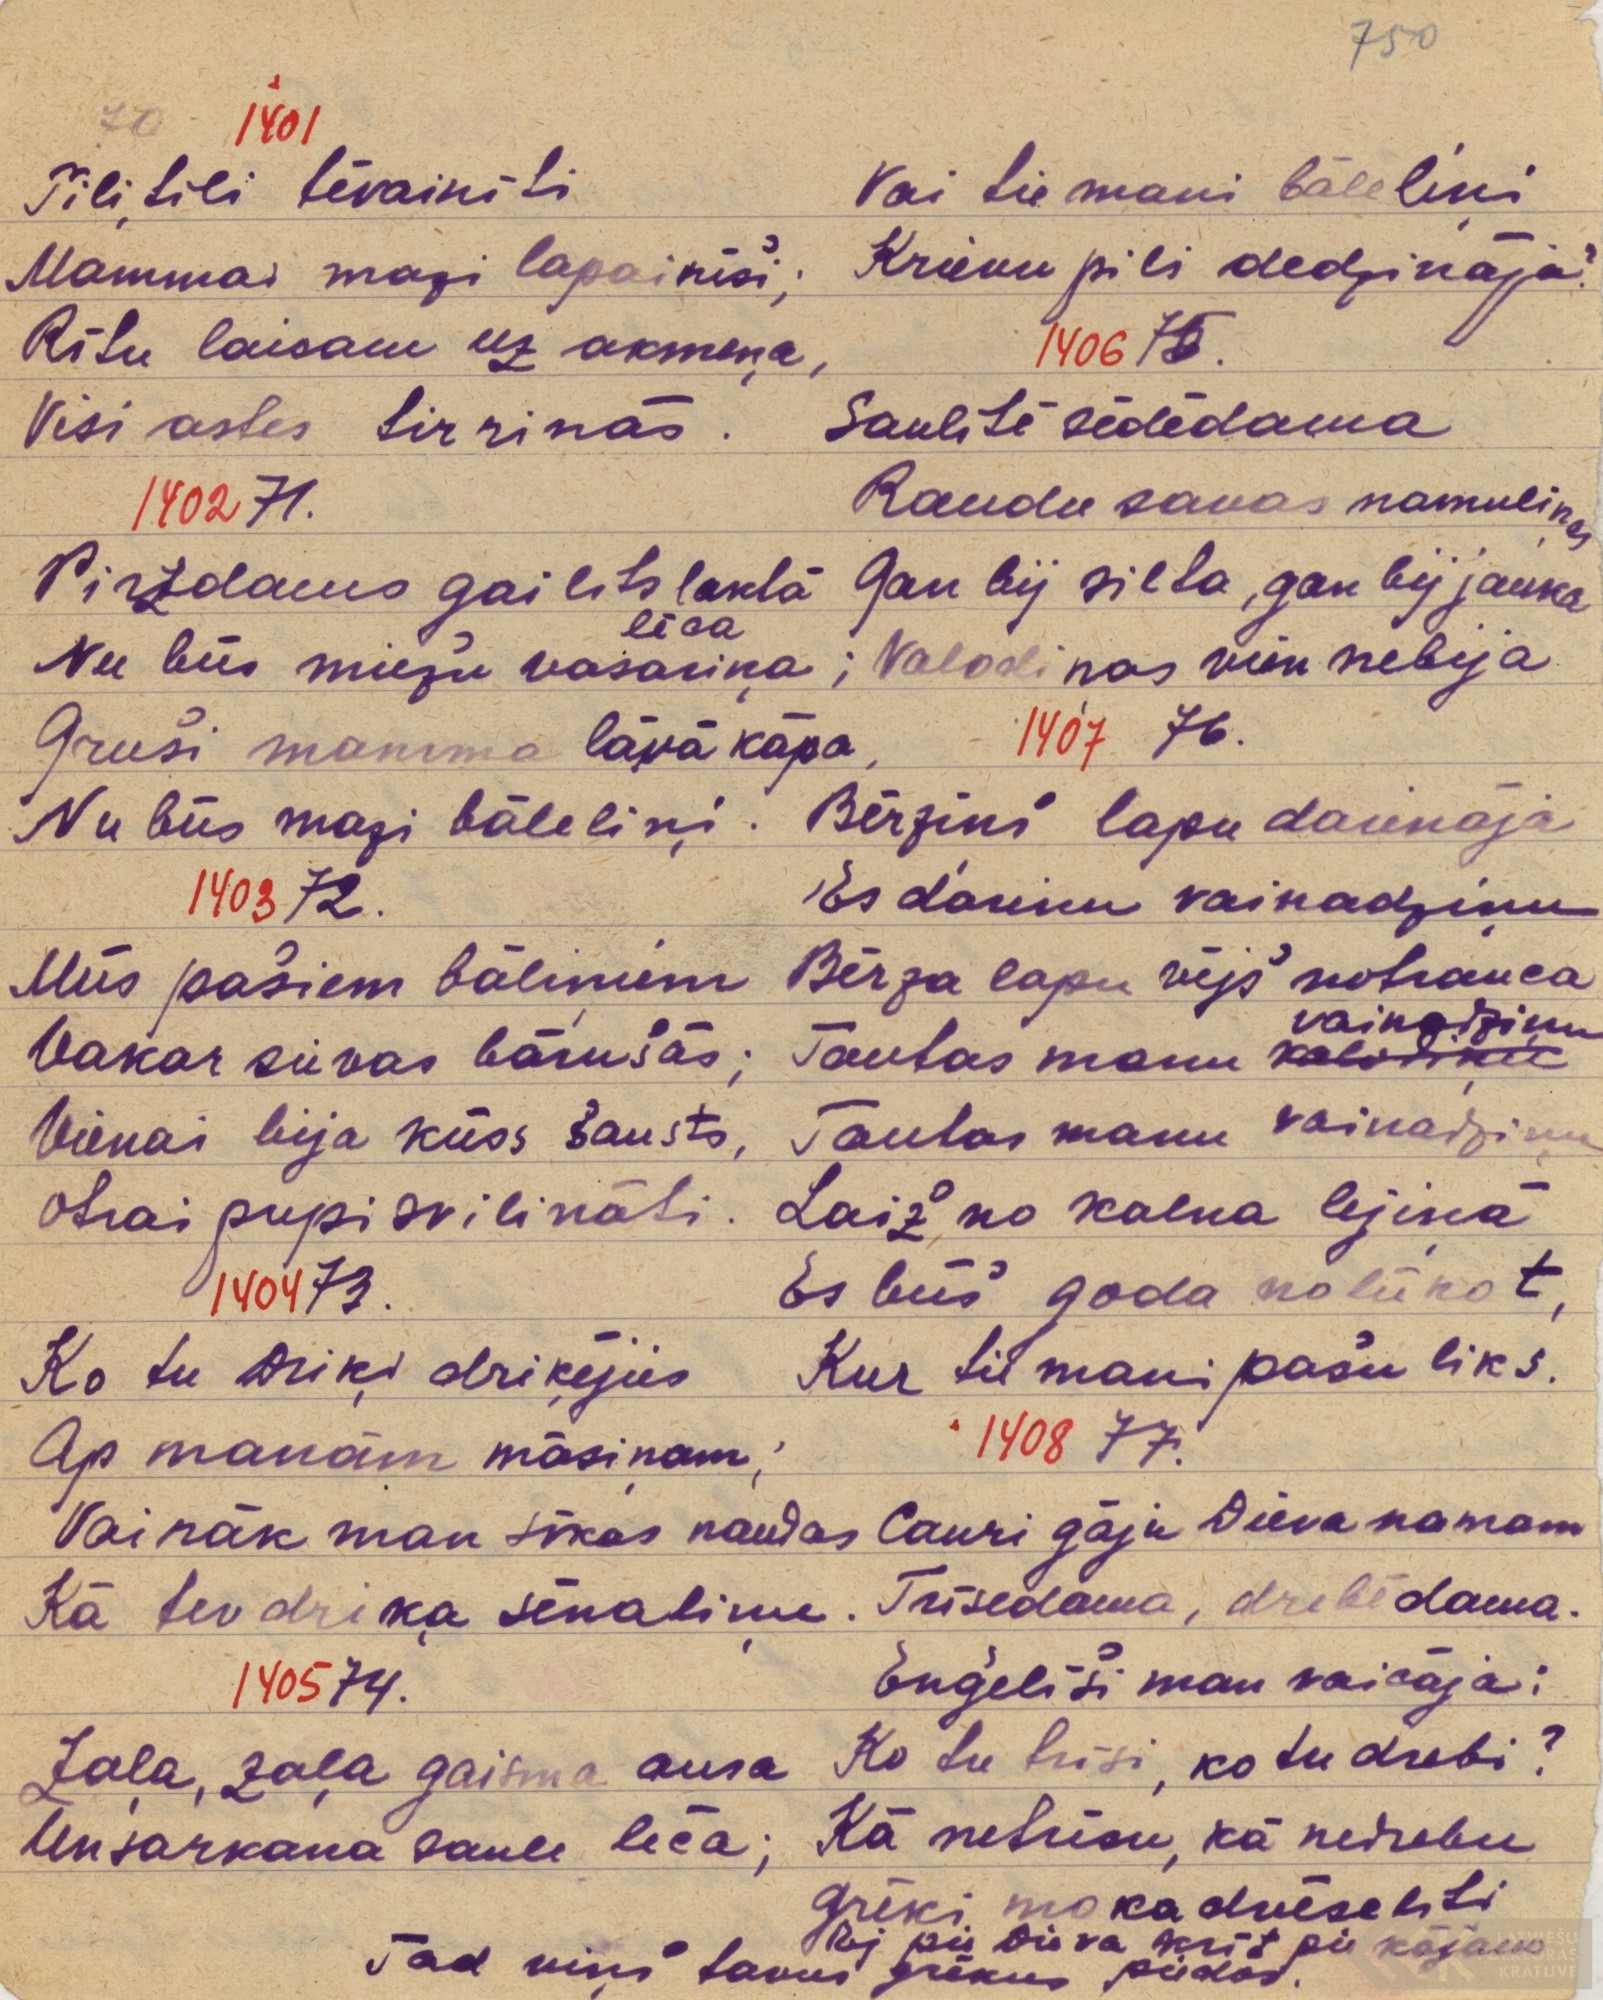 750
70 1401
Tili, tili tēvainīti
Mammai mazi lapainīši;
Rītu laisam uz akmeņa,
Visi astes tirrinās.
1402 71.
Pirzdams gailits laktā lēca
Nu būs miežu vasariņa;
Gruši mamma lāvā kāpa,
Nu būs mazi bāleliņi.
1403 72.
Mūs pašiem bāliņiem
Vakar sievas bārušās;
Vienai bija kūss šausts,
Otrai pupi svilināti.
1404 73.
Ko tu Driķi driķējies
Ap manām māsiņam;
Vai nāk man sīkas naudas
Kā tev driķa sēnaliņu.
1405 74.
Zaļa, zaļa gaisma ausa
Un sarkana saule lēca;
Vai tie mani bāleliņi
Krievu pili dedzināja?
1406 75.
Saulītē sēdēdama
Raudu savas namuliņas
Gan bij silta, gan bij jauka
Valodiņas vien nebija
1407 76.
Bērziņš lapu darināja
Es darinu vainadziņu
Bērza lapu vējš notrauca
Tautas manu vainadziņu
Tautas manu vainadziņu
Laiž no kalna lejiņā
Es būš goda nolūkot,
Kur tie mani pašu liks.
1408 77.
Cauri gāju Dieva namam
Trīsedama, drebēdama.
Enģelīši man vaicāja:
Ko tu trīsi, ko tu drebi?
Kā netrīsu, kā nedrebu
Grēki moka dvēselīti
Ej pie Dieva krīt pie kājām
Tad viņš tavus grēkus piedos.
LATVIEŠU
KRĀTUVE